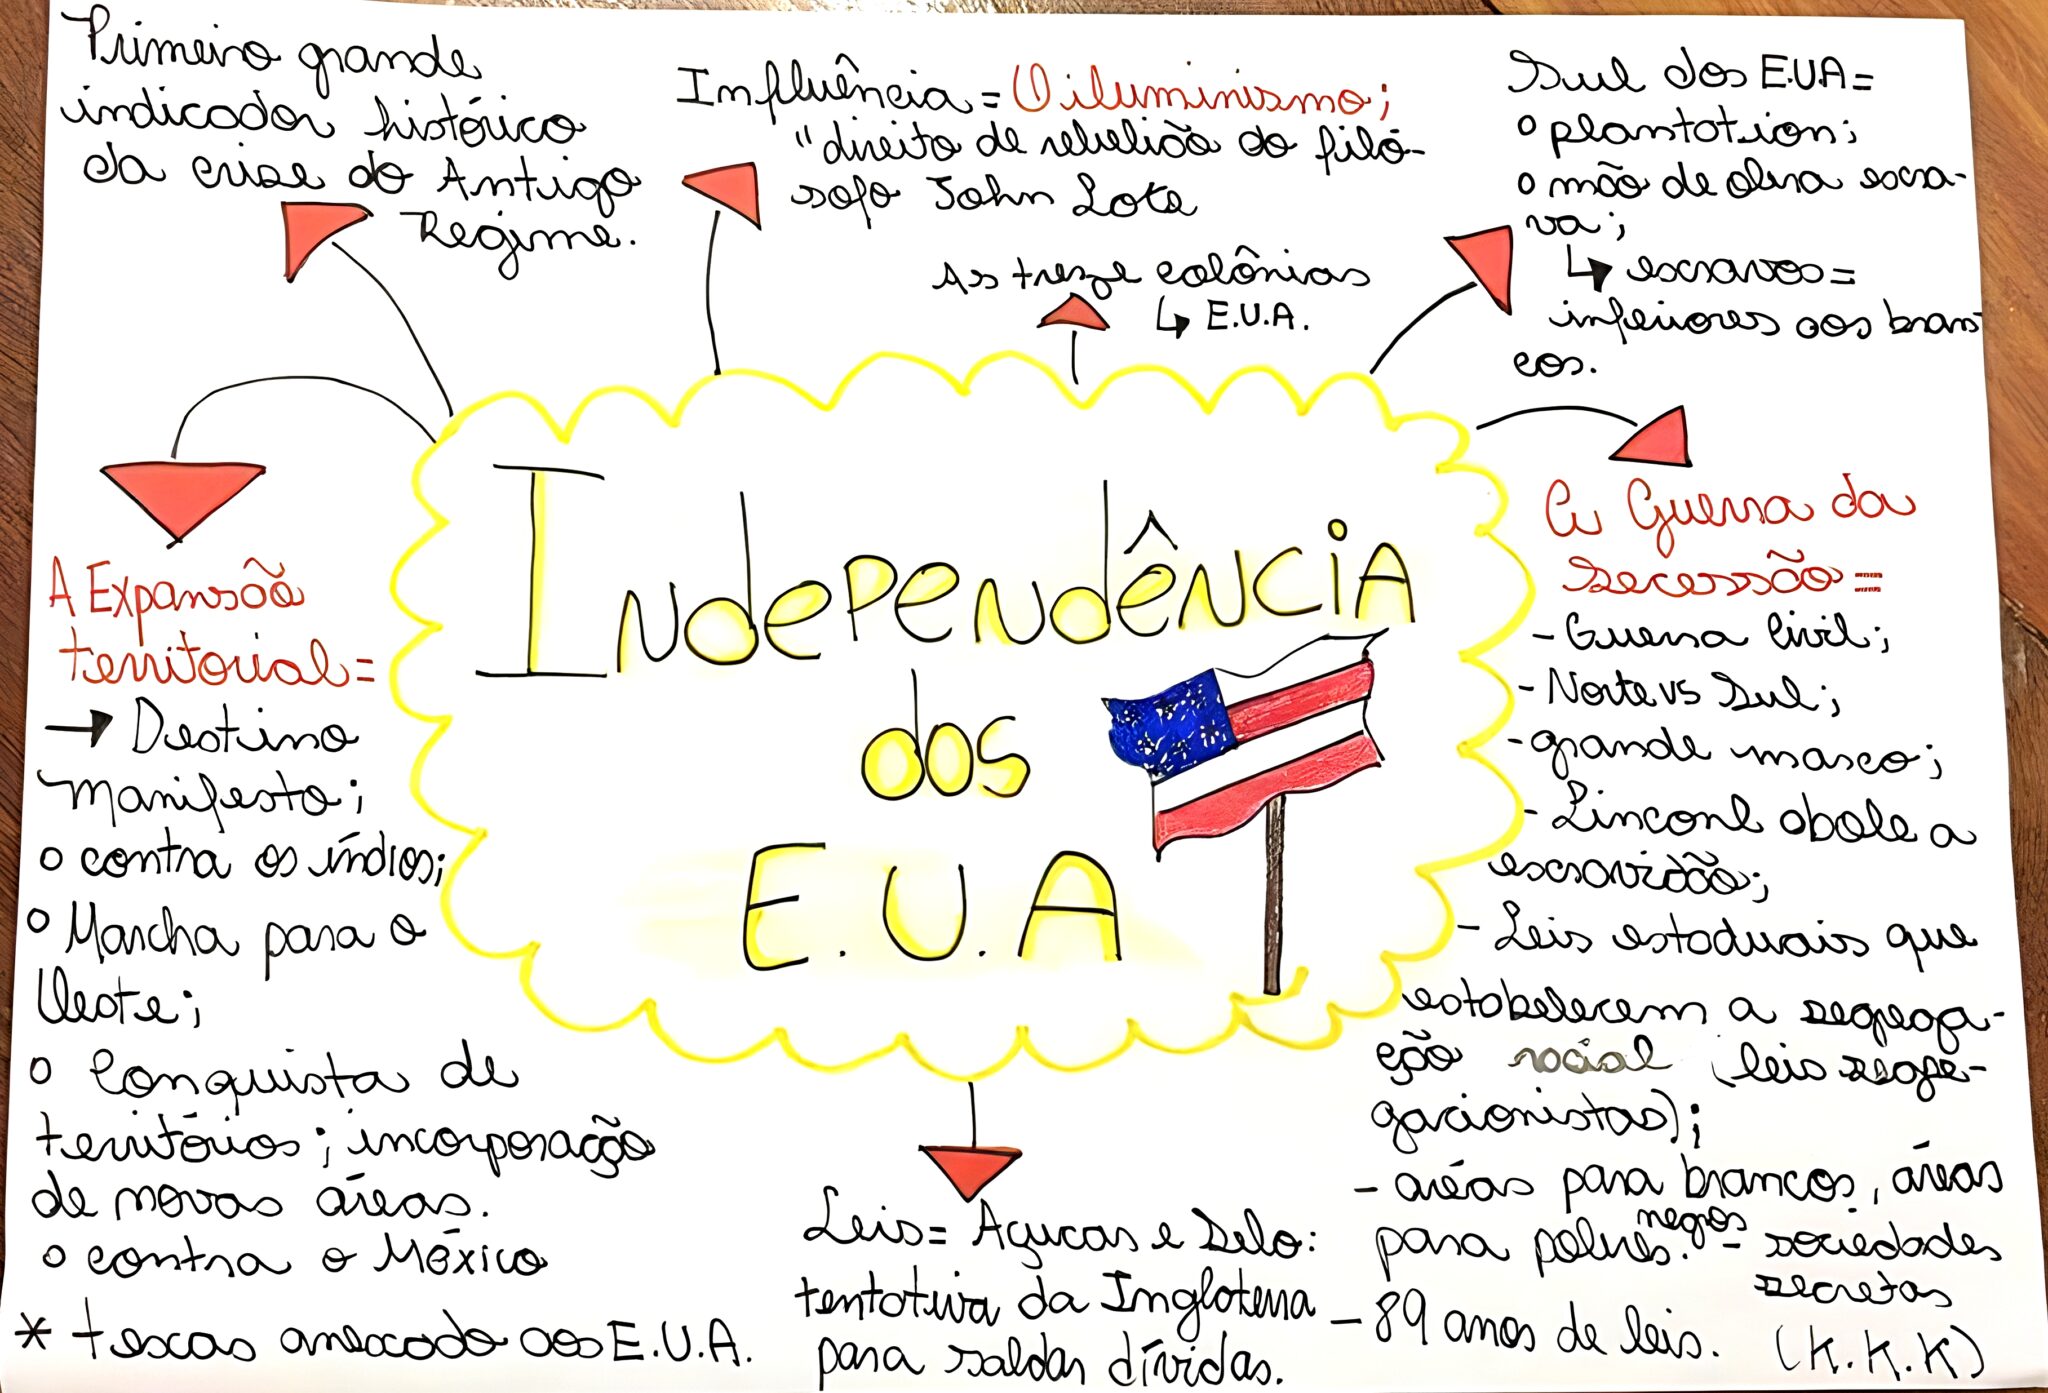 Primeiro grande
indicador histórico
da crise do Antigo
Regime.
Influência = O iluminismo;
"direito de rebelião do filó-
sofo John Loke
As treze colônias
↳ E.U.A.
Sul dos E.U.A =
o plantation;
o mão de obra escra-
va;
↳ escravos =
inferiores aos bran
cos.
A Expansão
territorial =
→ Destino
manifesto;
o contra os índios;
o Marcha para o
Oeste;
o Conquista de
territórios; incorporação
de novas áreas.
o contra o México
* texas anexado aos E.U.A.
Independência
dos
E.U.A
Leis = Açucar e Selo:
tentativa da Inglaterra
para saldar dívidas.
A Guerra da
Secessão =
- Guerra Civil;
- Norte vs Sul;
- grande marco;
- Linconl abole a
escravidão;
- Leis estaduais que
estabelecem a segrega-
ção racial (leis segre-
gacionistas);
- áreas para brancos, áreas
para pobres. negros - sociedades
secretas
(K.K.K)
- 89 anos de leis.